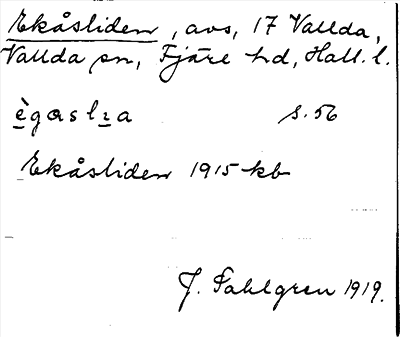 Ekåsliden, avs, 17 Vallda,
Vallda sn, Fjäre hd, Hall. l.
ègɑslɩa s. 56
Ekåsliden 1915 kb
J. Sahlgren 1919.